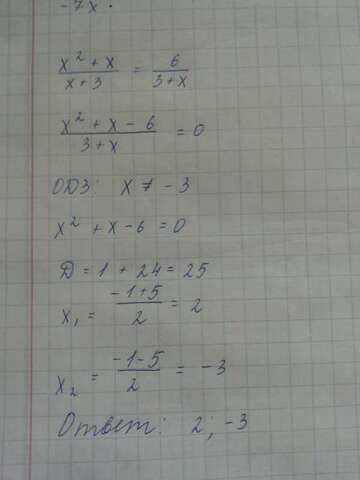 -7x.
x² + x / x + 3 = 6 / 3 + x
x² + x - 6 / 3 + x = 0
ОДЗ: x ≠ -3
x² + x - 6 = 0
D = 1 + 24 = 25
x₁ = -1+5 / 2 = 2
x₂ = -1-5 / 2 = -3
Ответ: 2; -3